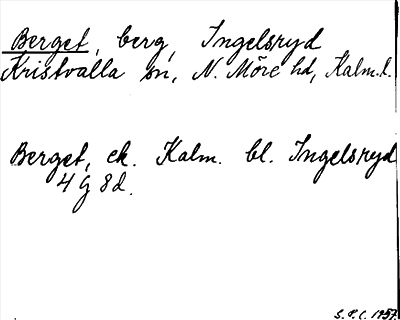 Berget, berg, Ingelsryd
Kristvalla sn, N. Möre hd, Kalm.l.
Berget, ek. Kalm. bl. Ingelsryd
4 G 8d.
1957.